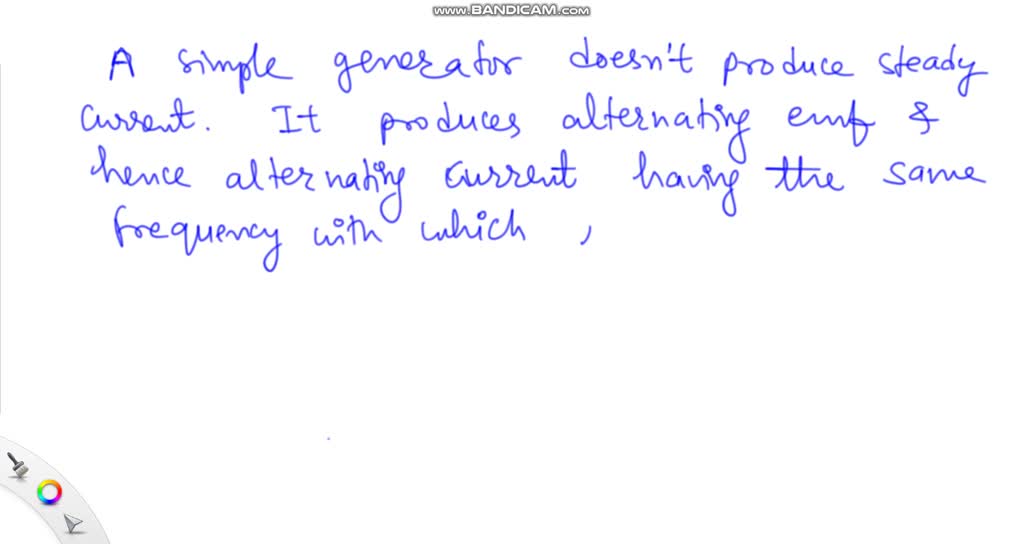 www.BANDICAM.com
A simple generator doesn't produce steady
current. It produces alternating emf &
hence alternating current having the same
frequency with which ,